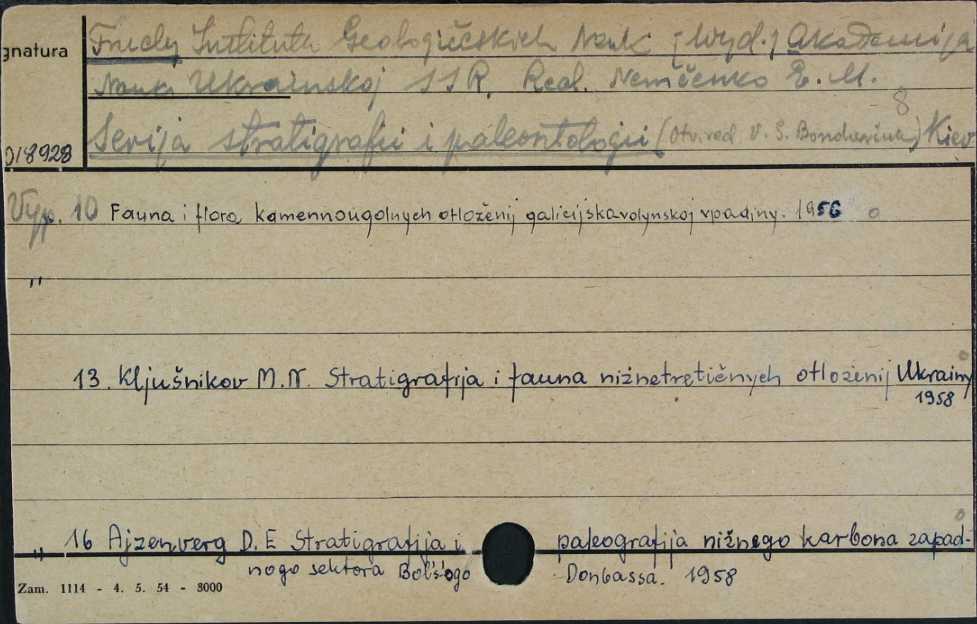 gnatura
Trudy Instituta Geologičeskich Nauk [Wyd.] Akademija
Nauk Ukrainskoj SSR. Red. Nemčenko E. M.
8
Serija stratigrafii i paleontologii (Otv. red V. G. Bondarčuk) Kiev
018928
Vyp. 10 Fauna i flora kamennougolnych otloženij galicijskavolynskoj vpadiny. 1956 o
"
13. Kljušnikov M. N. Stratigrafija i fauna nižnetretičnych otloženij Ukrainy
1958
" 16 Ajzenverg D. E Stratigrafija i paleografija nižnego karbona zapad-
nogo sektora Bol'šogo Donbassa. 1958
Zam. 1114 - 4. 5. 54 - 8000